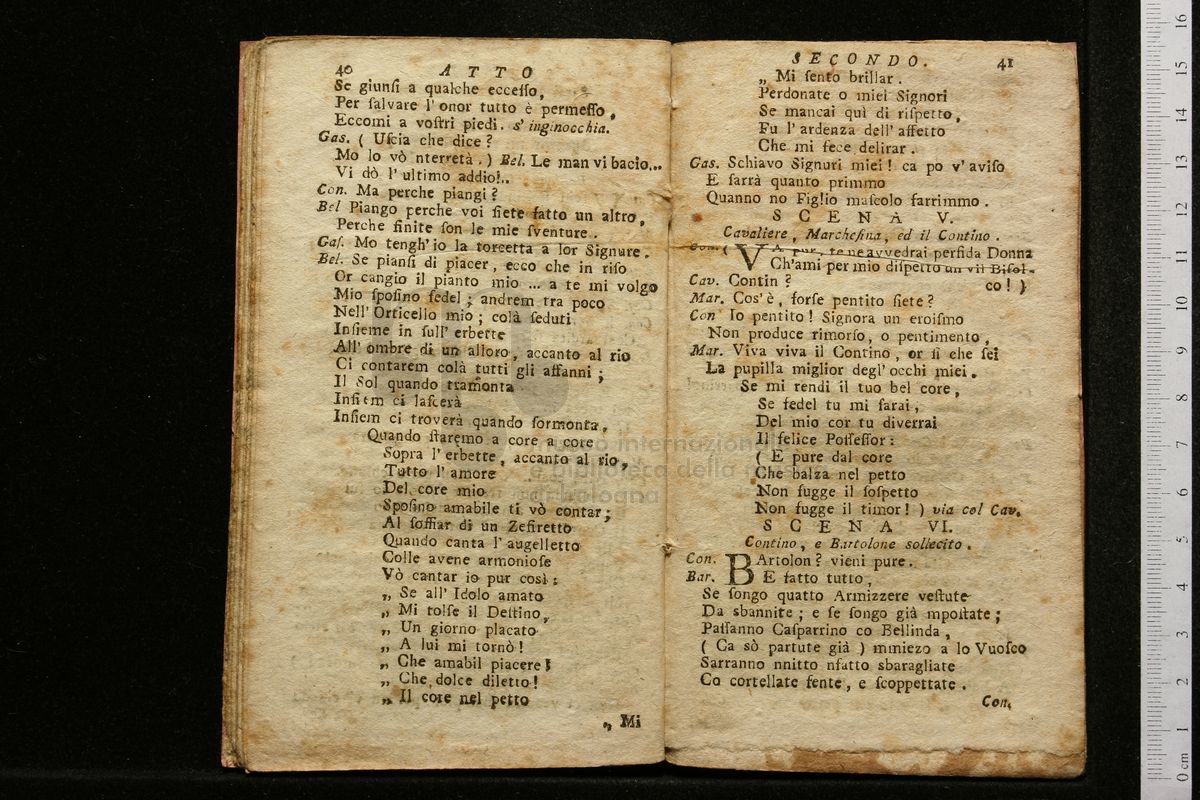 40 ATTO
Se giunſi a qualche ecceſſo,
Per ſalvare l' onor tutto è permeſſo,
Eccomi a voſtri piedi. s' inginocchia.
Gas. ( Uſcia che dice ?
Mo lo vò nterretà . ) Bel. Le man vi bacio...
Vi dò l' ultimo addio!..
Con. Ma perche piangi ?
Bel Piango perche voi ſiete fatto un altro,
Perche finite ſon le mie ſventure .
Gaſ. Mo tengh' io la torcetta a lor Signure .
Bel. Se pianſi di piacer, ecco che in riſo
Or cangio il pianto mio ... a te mi volgo
Mio ſpoſino fedel ; andrem tra poco
Nell' Orticello mio ; colà ſeduti
Inſieme in ſull' erbette
All' ombre di un alloro, accanto al rio
Ci contarem colà tutti gli affanni ;
Il Sol quando tramonta
Inſiem ci laſcerà
Inſiem ci troverà quando ſormonta,
Quando ſtaremo a core a core
Sopra l' erbette, accanto al rio,
Tutto l' amore
Del core mio
Spoſino amabile ti vò contar ;
Al ſoffiar di un Zefiretto
Quando canta l' augelletto
Colle avene armonioſe
Vò cantar io pur così :
„ Se all' Idolo amato
„ Mi tolſe il Deſtino,
„ Un giorno placato
„ A lui mi tornò !
„ Che amabil piacere !
„ Che dolce diletto !
„ Il core nel petto
„ Mi
SECONDO. 41
„ Mi ſento brillar .
Perdonate o miei Signori
Se mancai quì di riſpetto,
Fu l' ardenza dell' affetto
Che mi fece delirar .
Gas. Schiavo Signuri miei ! ca po v' aviſo
E ſarrà quanto primmo
Quanno no Figlio maſcolo farrimmo .
SCENA V.
Cavaliere, Marcheſina, ed il Contino .
Con. ( VA pur, te ne avvedrai perfida Donna
Ch'ami per mio diſpetto un vil Bifol-
co ! )
Cav. Contin ?
Mar. Cos' è, forſe pentito ſiete ?
Con Io pentito ! Signora un eroiſmo
Non produce rimorſo, o pentimento,
Mar. Viva viva il Contino, or ſi che ſei
La pupilla miglior degl' occhi miei.
Se mi rendi il tuo bel core,
Se fedel tu mi ſarai,
Del mio cor tu diverrai
Il felice Poſſeſſor :
( E pure dal core
Che balza nel petto
Non fugge il ſoſpetto
Non fugge il timor ! ) via col Cav.
SCENA VI.
Contino, e Bartolone ſollecito .
Con. BArtolon ? vieni pure .
Bar. E fatto tutto,
Se ſongo quatto Armizzere veſtute
Da sbannite ; e ſe ſongo già mpoſtate ;
Paſſanno Caſparrino co Bellinda,
( Ca sò partute già ) mmiezo a lo Vuoſco
Sarranno nnitto nfatto sbaragliate
Co cortellate fente, e ſcoppettate .
Con.
museo internazionale
e biblioteca della musica
di bologna
0 cm 1 2 3 4 5 6 7 8 9 10 11 12 13 14 15 16